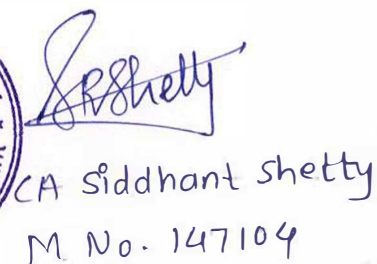 SRShetty
CA Siddhant Shetty
M No. 147104